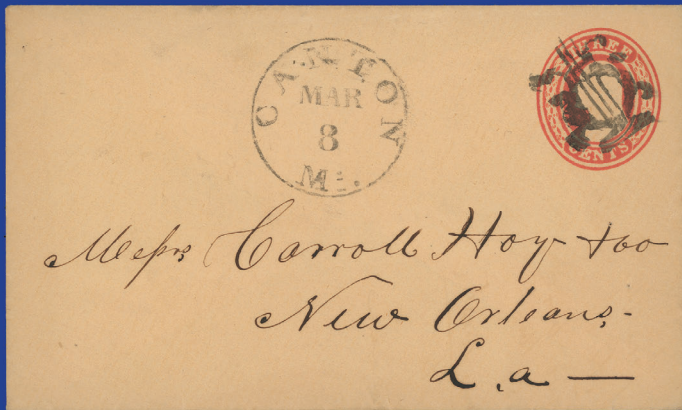 CANTON
MAR
8
Mi.
THREE
CENTS
Messrs Carroll Hoy & Co
New Orleans.
La